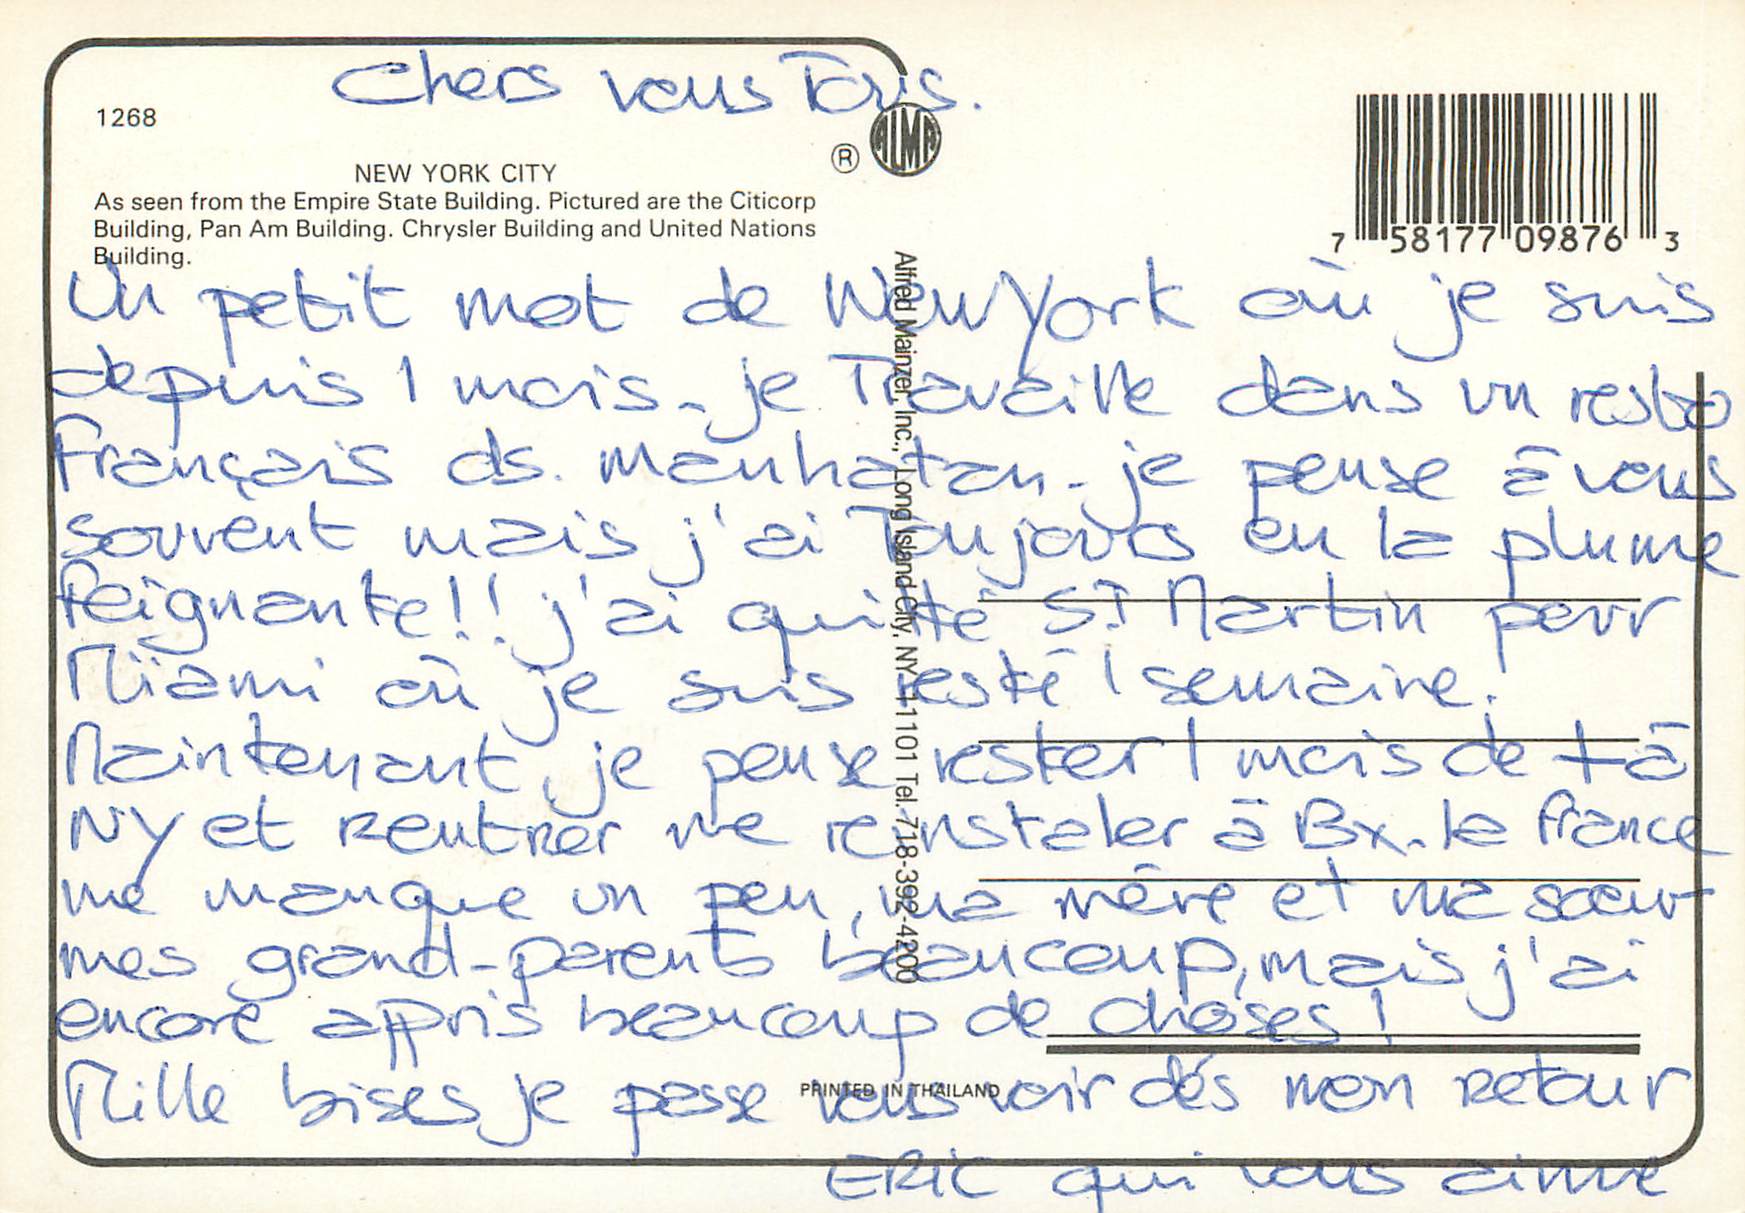 Chers vous Tous.
1268
® ALMA
NEW YORK CITY
As seen from the Empire State Building. Pictured are the Citicorp
Building, Pan Am Building. Chrysler Building and United Nations
Building.
7 58177 09876 3
Un petit mot de New York où je suis
depuis 1 mois - je Travaille dans un resto
français ds. manhatan - je pense à vous
souvent mais j'ai Toujours eu la plume
feignante!! j'ai quitté ST Martin pour
Miami où je suis resté 1 semaine.
Maintenant, je pense rester 1 mois de + à
NY et Rentrer me reinstaler à Bx. la france
me manque un peu, ma mère et ma sœur
mes grand-parents beaucoup, mais j'ai
encore appris beaucoup de choses !
Mille bises je passe vous voir dés mon Retour
ERIC qui vous aime
Alfred Mainzer, Inc., Long Island City, NY 11101 Tel. 718-392-4200
PRINTED IN THAILAND